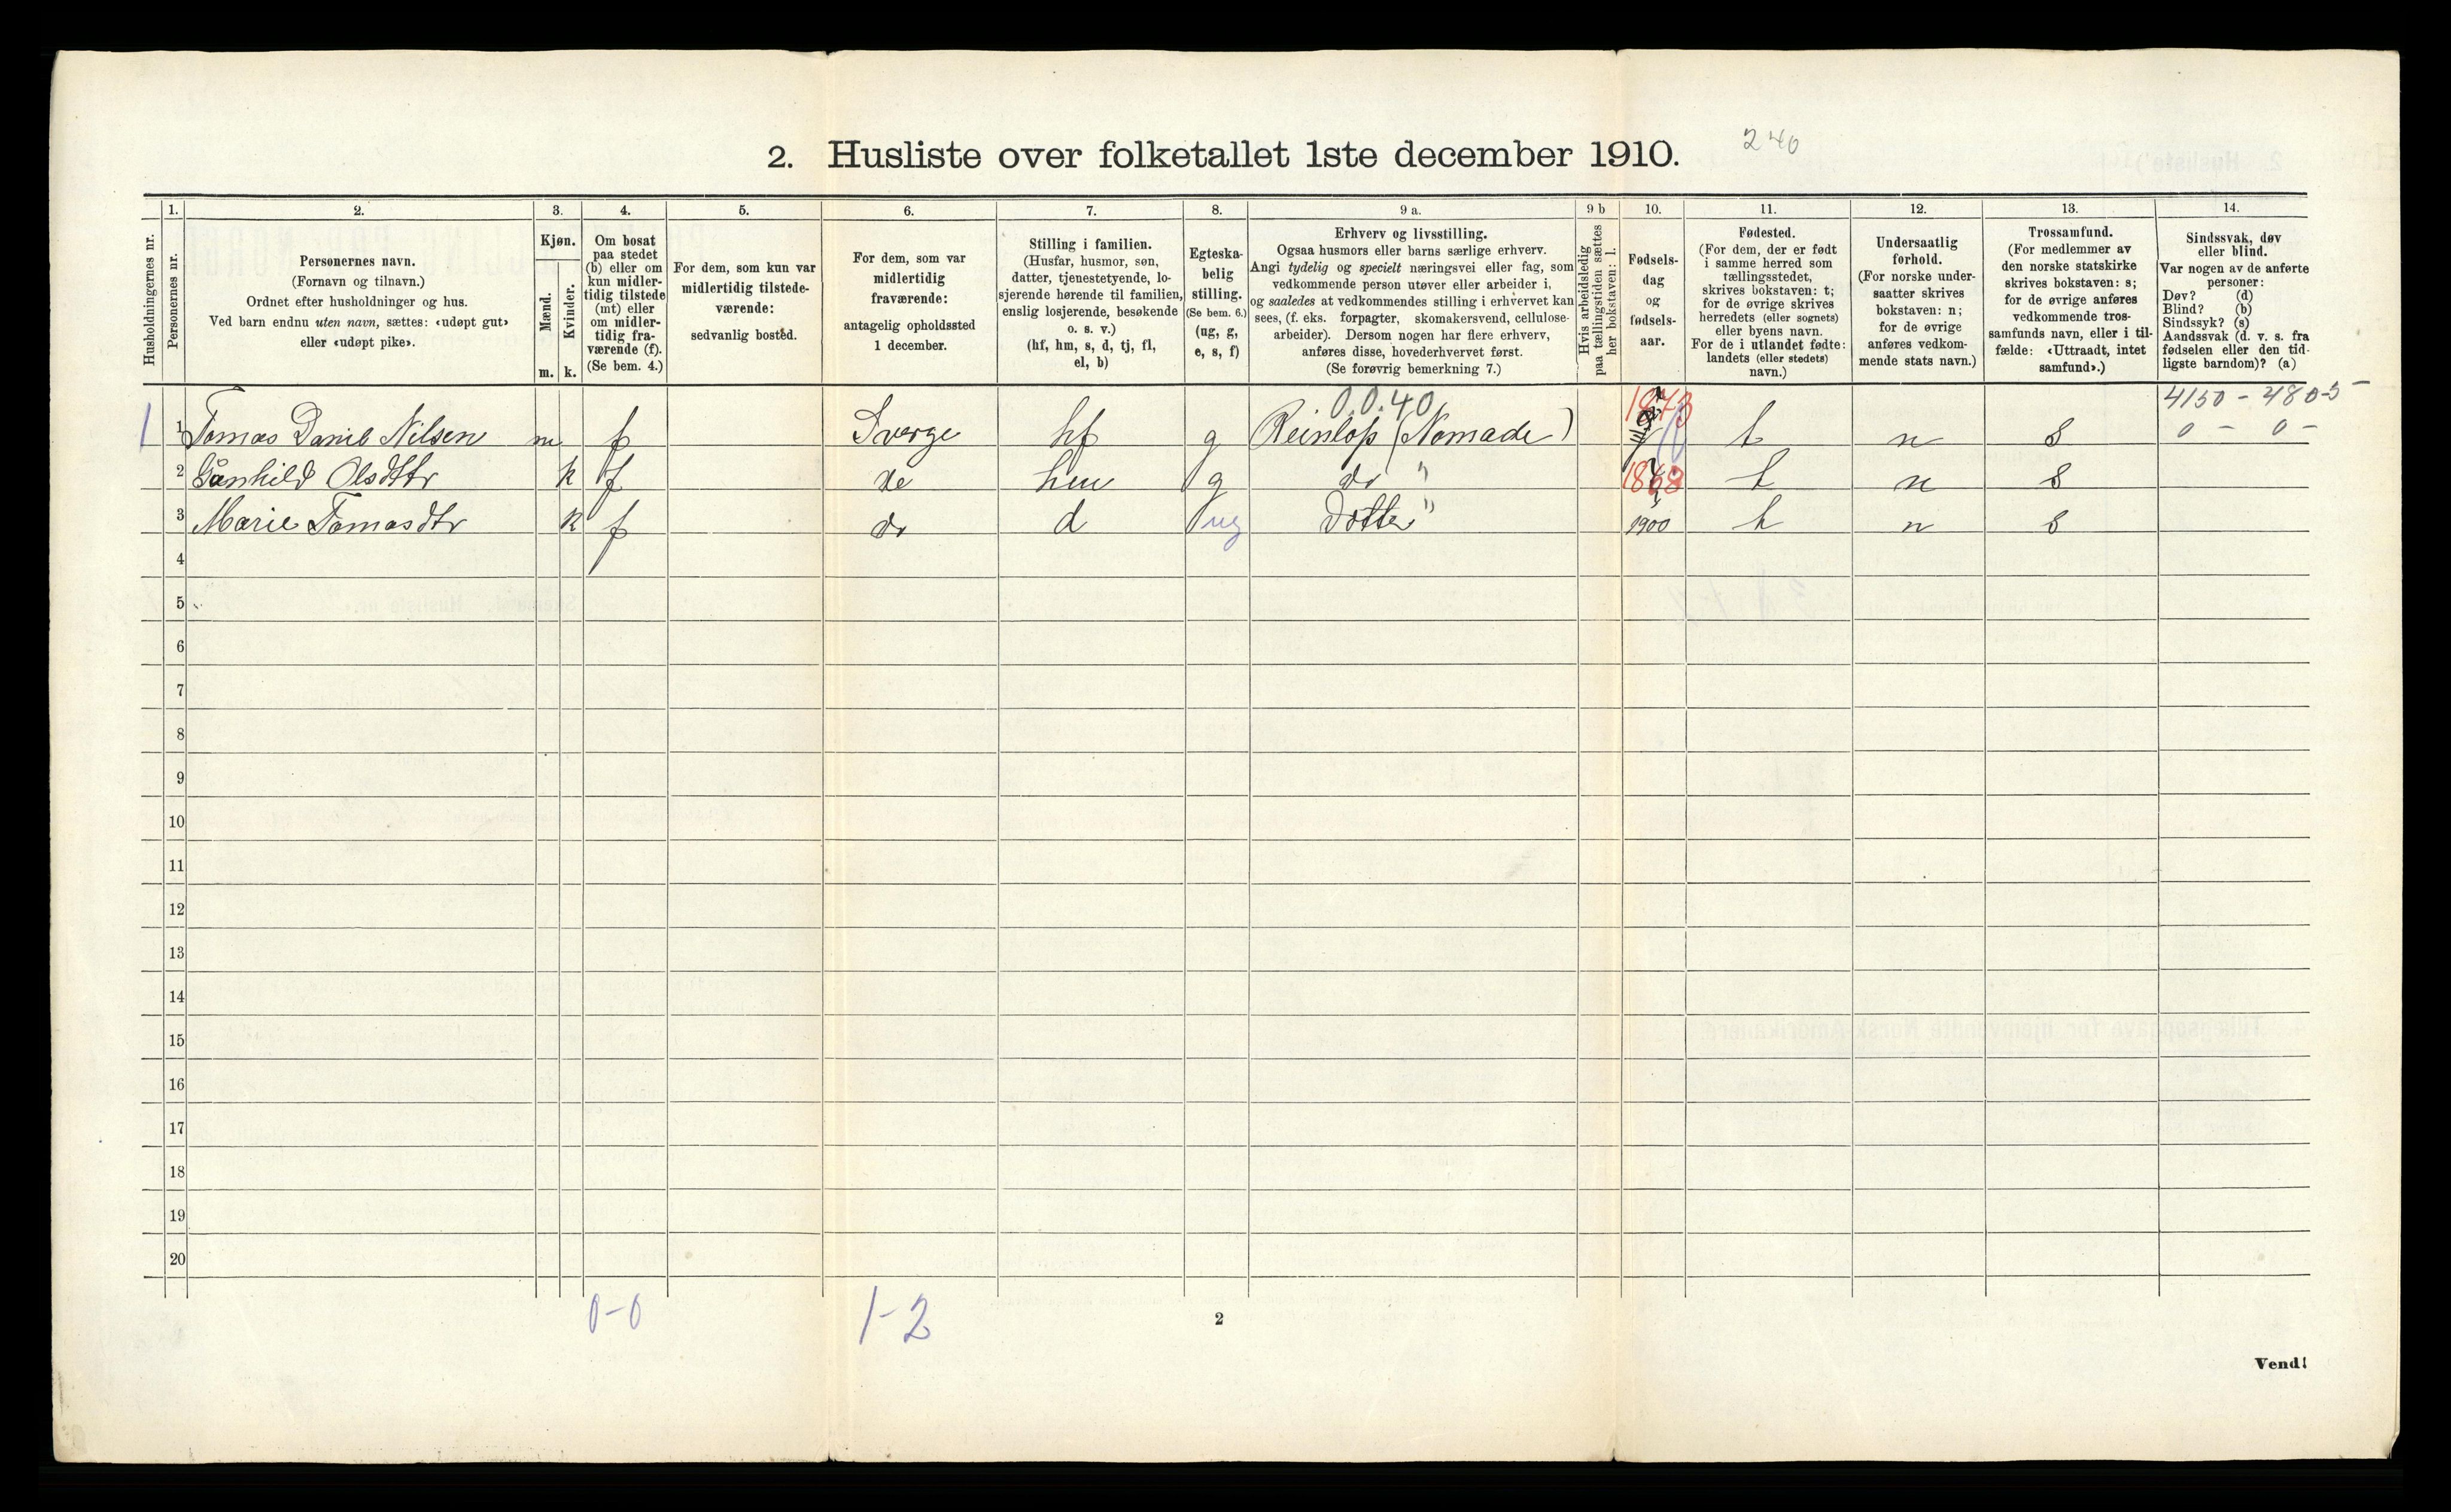 2. Husliste over folketallet 1ste december 1910. 240
Husholdningernes nr.
1.
Personernes nr.
2.
Personernes navn.
(Fornavn og tilnavn.)
Ordnet efter husholdninger og hus.
Ved barn endnu uten navn, sættes: «udøpt gut»
eller «udøpt pike».
3.
Kjøn.
Mænd.
Kvinder.
m. k.
4.
Om bosat
paa stedet
(b) eller om
kun midler-
tidig tilstede
(mt) eller
om midler-
tidig fra-
værende (f).
(Se bem. 4.)
5.
For dem, som kun var
midlertidig tilstede-
værende:
sedvanlig bosted.
6.
For dem, som var
midlertidig
fraværende:
antagelig opholdssted
1 december.
7.
Stilling i familien.
(Husfar, husmor, søn,
datter, tjenestetyende, lo-
sjerende hørende til familien,
enslig losjerende, besøkende
o. s. v.)
(hf, hm, s, d, tj, fl,
el, b)
8.
Egteska-
belig
stilling.
(Se bem. 6.)
(ug, g,
e, s, f)
9 a.
Erhverv og livsstilling.
Ogsaa husmors eller barns særlige erhverv.
Angi tydelig og specielt næringsvei eller fag, som
vedkommende person utøver eller arbeider i,
og saaledes at vedkommendes stilling i erhvervet kan
sees, (f. eks. forpagter, skomakersvend, cellulose-
arbeider). Dersom nogen har flere erhverv,
anføres disse, hovederhvervet først.
(Se forøvrig bemerkning 7.)
9 b
Hvis arbeidsledig
paa tællingstiden sættes
her bokstaven: l.
10.
Fødsels-
dag
og
fødsels-
aar.
11.
Fødested.
(For dem, der er født
i samme herred som
tællingsstedet,
skrives bokstaven: t;
for de øvrige skrives
herredets (eller sognets)
eller byens navn.
For de i utlandet fødte:
landets (eller stedets)
navn.)
12.
Undersaatlig
forhold.
(For norske under-
saatter skrives
bokstaven: n;
for de øvrige
anføres vedkom-
mende stats navn.)
13.
Trossamfund.
(For medlemmer av
den norske statskirke
skrives bokstaven: s;
for de øvrige anføres
vedkommende tros-
samfunds navn, eller i til-
fælde: «Uttraadt, intet
samfund».)
14.
Sindssvak, døv
eller blind.
Var nogen av de anførte
personer:
Døv? (d)
Blind? (b)
Sindssyk? (s)
Aandssvak (d. v. s. fra
fødselen eller den tid-
ligste barndom)? (a)
0.0.40 1873 4150 - 4805 -
1 1 Tomas Danil Nilsen m f Sverge hf g Reinlop (Nomade) t n s 0 - 0 -
2 Gunhild Olsdtr k f do hm g do " 1868 t n s
3 Marie Tomasdtr k f do d ug Dotter " 1900 t n s
4
5
6
7
8
9
10
11
12
13
14
15
16
17
18
19
20
0-0 1-2
2
Vend!